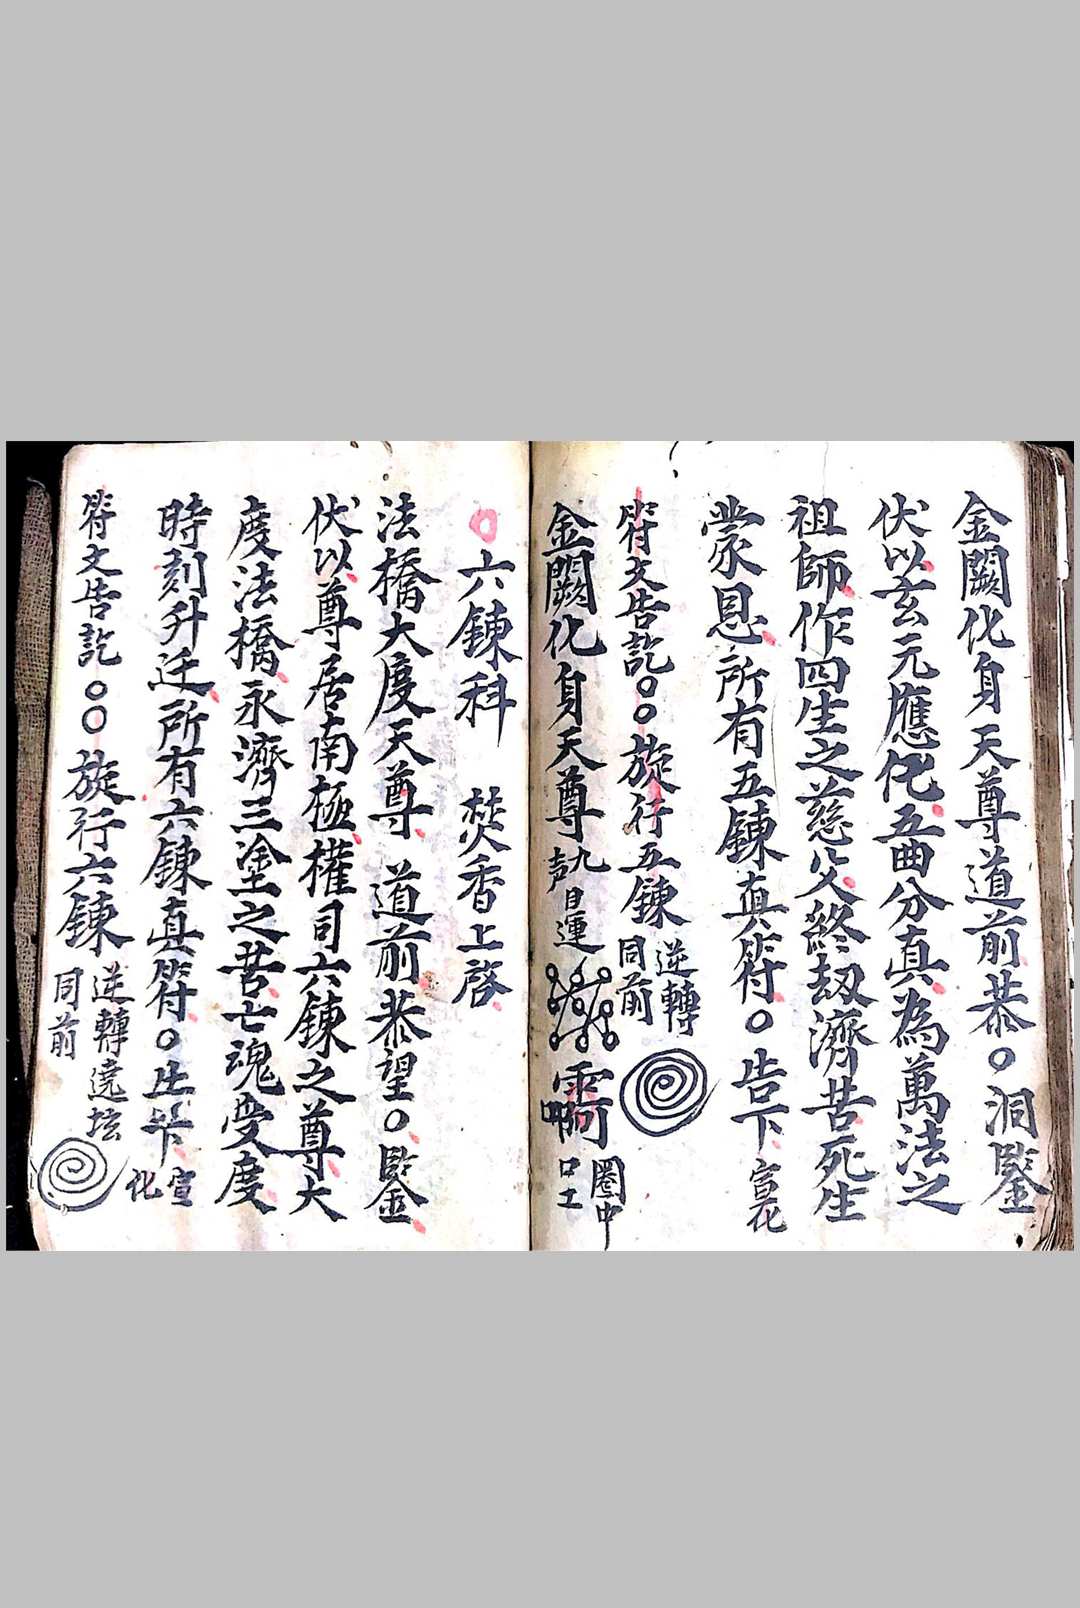 金闕化身天尊道前恭〇洞鑒
伏以玄元應化五曲分真為萬法之
祖師作四生之慈父終劫濟苦死生
蒙恩所有五鍊真符〇告下宣化
符文告訖〇〇旋行五鍊逆轉同前
金闕化身天尊九聲日運圈中
〇六鍊科 焚香上啓
法橋大度天尊 道前恭望〇鑒
伏以尊居南極權司六鍊之尊大
度法橋永濟三塗之苦亡魂受度
時刻升迁所有六鍊真符〇告下宣化
符文告訖〇〇旋行六鍊逆轉遶坛同前